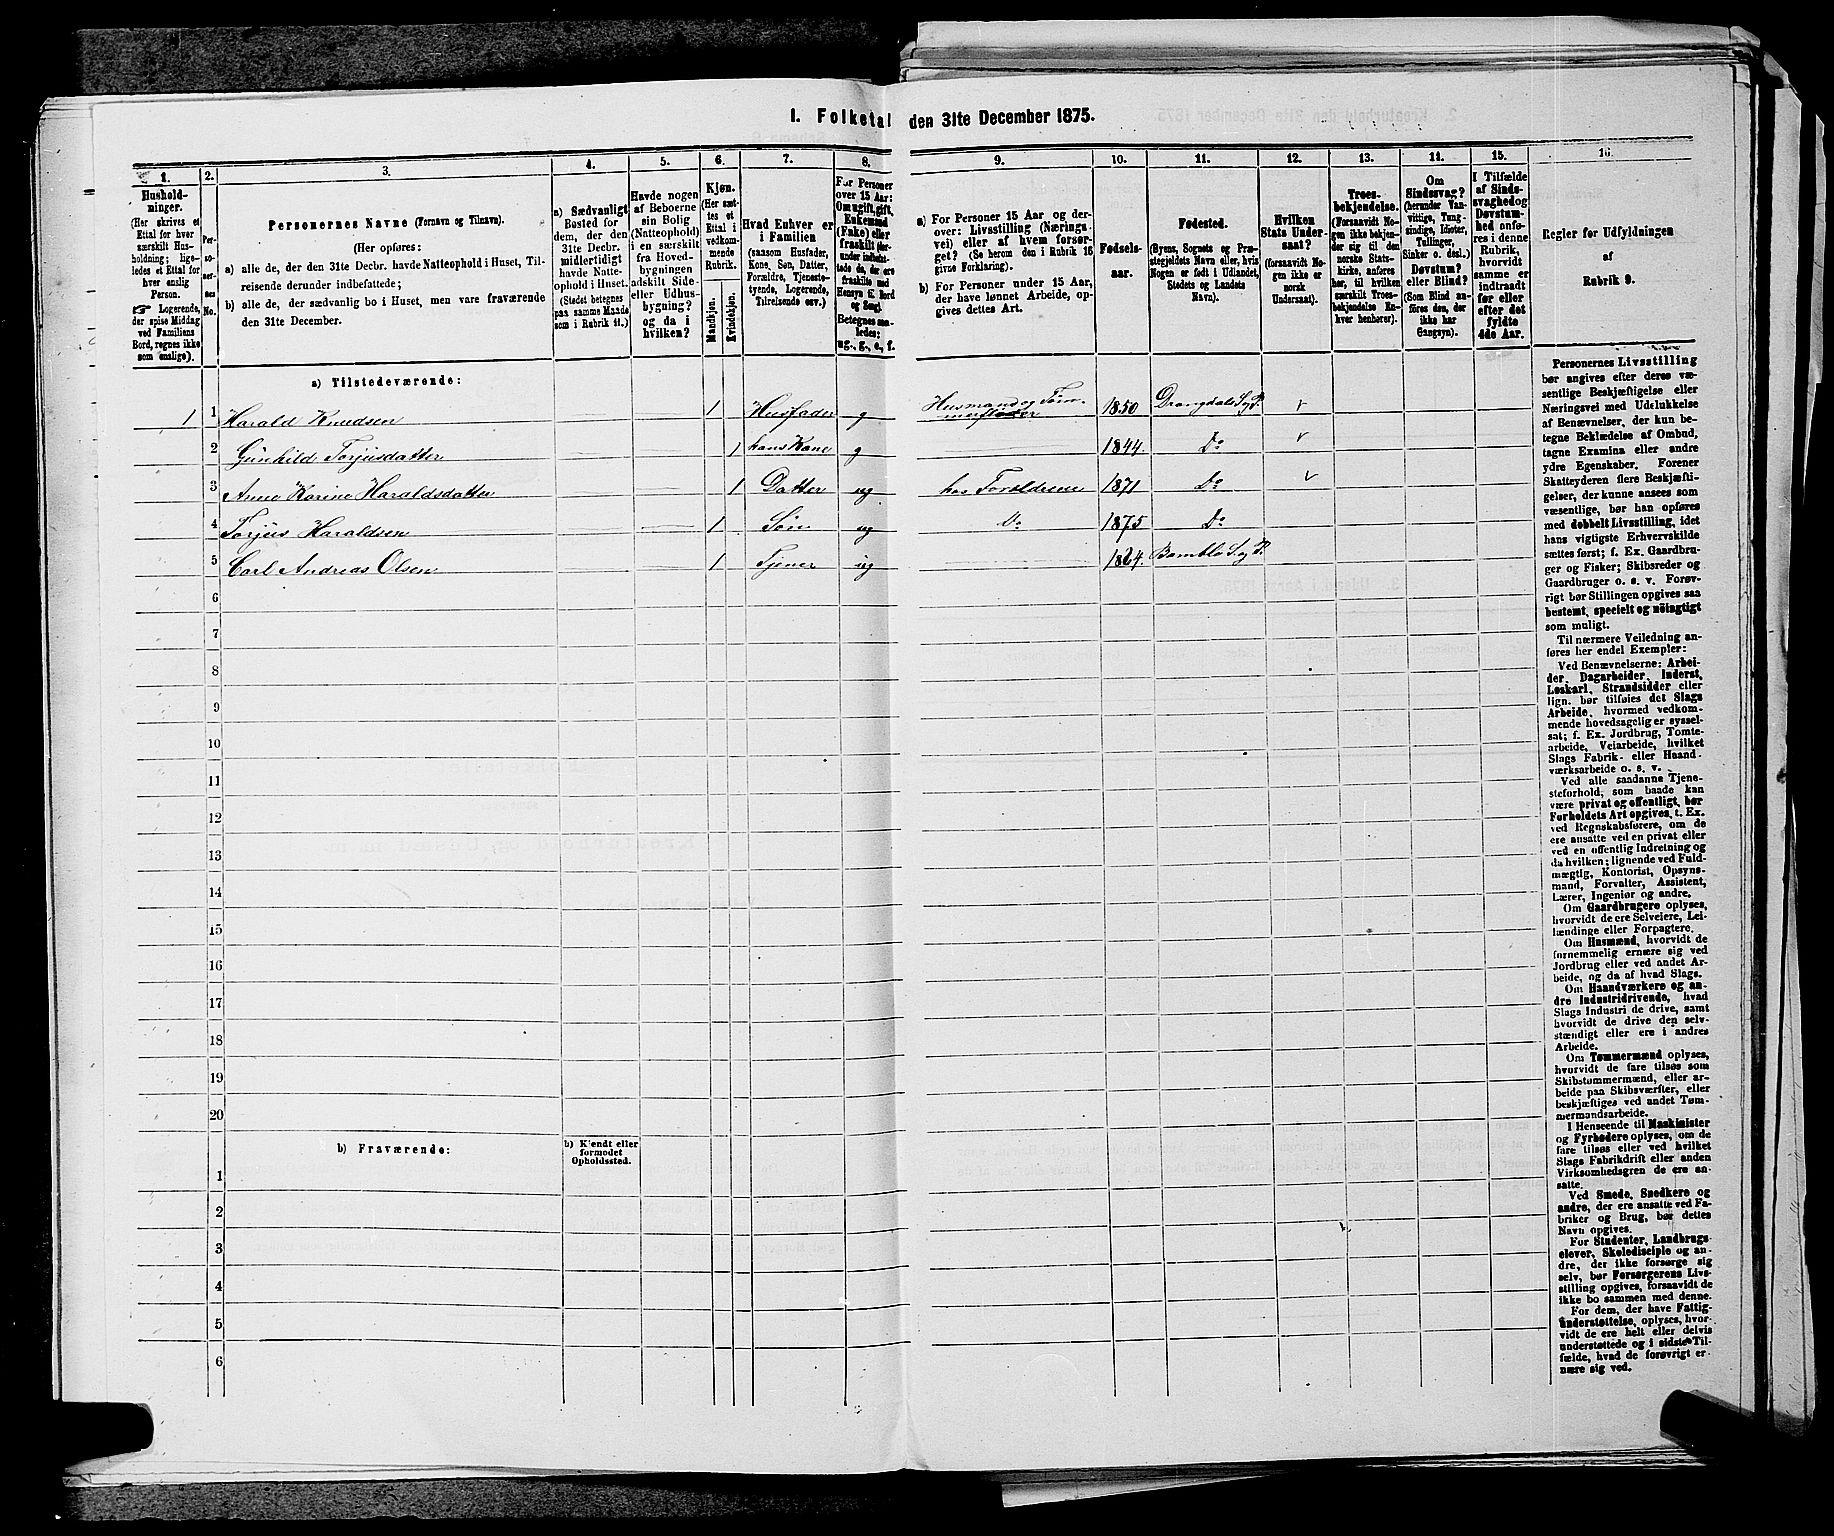 I. Folketal den 31te December 1875.
1.
2.
3.
4.
5.
6.
7.
8.
9.
10.
11.
12.
13.
14.
15.
16.
Hushold-
ninger.
(Her skrives et
Ettal for hver
særskilt Hus-
holdning; lige-
ledes et Ettal for
hver enslig
Person.
☞ Logerende,
der spise Middag
ved Familiens
Bord, regnes ikke
som enslige).
Per-
so-
ner-
nes
No.
Personernes Navne (Fornavn og Tilnavn).
(Her opføres:
a) alle de, der den 31te Decbr. havde Natteophold i Huset, Til-
reisende derunder indbefattede;
b) alle de, der sædvanlig bo i Huset, men vare fraværende
den 31te December.
a) Sædvanligt
Bosted for
dem, der den
31te Decbr.
midlertidigt
havde Natte-
ophold i Huset.
(Stedet betegnes
paa samme Maade
som i Rubrik 11.)
Havde nogen
af Beboerne
sin Bolig
(Natteophold)
i en særskilt
fra Hoved-
bygningen
adskilt Side-
eller Udhus-
bygning?
og da i
hvilken?
Kjøn.
(Her sæt-
tes et
Ettal i
vedkom-
mende
Rubrik.
Mandkjøn.
Kvindekjøn.
Hvad Enhver er
i Familien
(saasom Husfader,
Kone, Søn, Datter,
Forældre, Tjeneste-
tyende, Logerende,
Tilreisende osv.)
For Personer
over 15 Aar:
Om ugift, gift,
Enkemand
(Enke) eller
fraskilt (der-
under indbefat-
tede de, der ere
fraskilte med
Hensyn til Bord
og Seng).
Betegnes saa-
ledes:
ug., g., e., f.
a) For Personer 15 Aar og der-
over: Livsstilling (Nærings-
vei) eller af hvem forsør-
get? (Se herom den i Rubrik 16
givne Forklaring).
b) For Personer under 15 Aar,
der have lønnet Arbeide, op-
gives dettes Art.
Fødsels-
aar.
Fødested.
(Byens, Sognets og Præ-
stegjeldets Navn eller, hvis
Nogen er født i Udlandet,
Stedets og Landets
Navn).
Hvilken
Stats Under-
saat?
(forsaavidt No-
gen ikke er
norsk
Undersaat).
Troes-
bekjendelse.
(Forsaavidt No-
gen ikke bekjen-
der sig til den
norske Stats-
kirke, anføres
her, til hvilken
særskilt Troes-
bekjendelse En-
hver henhører).
Om
Sindssvag?
(herunder Van-
vittige, Tung-
sindige, Idioter,
Tullinger,
Sinker o. desl.).
Døvstum?
eller Blind?
(Som Blind an-
føres den, der
ikke har
Gangsyn).
I Tilfælde
af Sinds-
svaghed og
Døvstum-
hed onfø-
res i denne
Rubrik,
hvorvidt
samme er
indtraadt
før eller
efter det
fyldte
4de Aar.
Regler før Udfyldningen
af
Rubrik 9.
a) Tilstedeværende:
1 1 Harald Knudsen 1 Husfader g Husmand og Tøm-
merfløder 1850 Drangdals S. og P.
2 Gunhild Torjusdatter 1 hans Kone g 1844. Do
3 Anne Karine Haraldsdatter 1 Datter ug hos Foreldrene 1871 Do
4 Torjus Haraldsen 1 Søn ug Do 1875 Do
5 Carl Andreas Olsen 1 Tjener ug 1824. Bamble S. og P.
6
7
8
9
10
11
12
13
14
15
16
17
18
19
20
b) Fraværende:
b) Kjendt eller
formodet
Opholdssted.
1
2
3
4
5
6
Personernes Livsstilling
bør angives efter deres væ-
sentlige Beskjæftigelse eller
Næringsvei med Udelukkelse
af Benævnelser, der kun be-
tegne Beklædelse af Ombud,
tagne Examina eller andre
ydre Egenskaber. Forener
Skatteyderen flere Beskjæfti-
gelser, der kunne ansees som
væsentlige, bør han opføres
med dobbelt Livsstilling, idet
hans vigtigste Erhvervskilde
sættes først; f. Ex. Gaardbru-
ger og Fisker; Skibsreder og
Gaardbruger o. s. v. Forøv-
rigt bør Stillingen opgives saa
bestemt, specielt og nöiagtigt
som muligt.
Til nærmere Veiledning an-
føres her endel Exempler:
Ved Benævnelserne: Arbei-
der, Dagarbeider, Inderst,
Løskarl, Strandsidder eller
lign. bør tilføies det Slags
Arbeide, hvormed vedkom-
mende hovedsagelig er syssel-
sat; f. Ex. Jordbrug, Tomte-
arbeide, Veiarbeide, hvilket
Slags Fabrik- eller Haand-
værksarbeide o. s. v.
Ved alle saadanne Tjene-
steforhold, som baade kan
være privat og offentligt, bør
Forholdets Art opgives, t. Ex.
ved Regnskabsførere, om de
ere ansatte ved en privat eller
ved en offentlig Indretning og
da hvilken; lignende ved Fuld-
mægtig, Kontorist, Opsyns-
mand, Forvalter, Assistent,
Lærer, Ingeniør og andre.
Om Gaardbrugere oplyses,
hvorvidt de ere Selveiere, Lei-
lændinge eller Forpagtere.
Om Husmænd, hvorvidt de
fornemmelig ernære sig ved
Jordbrug eller ved andet Ar-
beide, og da af hvad Slags.
Om Haandværkere og an-
dre Industridrivende, hvad
Slags Industri de drive, samt
hvorvidt de drive den selv-
stændigt eller ere i andres
Arbeide.
Om Tømmermænd oplyses,
hvorvidt de fare tilsøs som
Skibstømmermænd, eller ar-
beide paa Skibsværfter, eller
beskjæftiges ved andet Tøm-
mermandsarbeide.
I Henseende til Maskinister
og Fyrbødere oplyses, om de
fare tilsøs eller ved hvilket
Slags Fabrikdrift eller anden
Virksomhedsgren de ere an-
satte.
Ved Smede, Snedkere og
andre, der ere ansatte ved Fa-
briker og Brug, bør dettes
Navn opgives.
For Studenter, Landbrugs-
elever, Skoledisciple og an-
dre, der ikke forsørge sig
selv, bør Forsørgerens Livs-
stilling opgives, forsaavidt de
ikke bo sammen med denne.
For dem, der have Fattig-
understøttelse, oplyses, hvor-
vidt de ere helt eller delvis
understøttede og i sidste Til-
fælde, hvad de forøvrigt er-
nære sig ved.